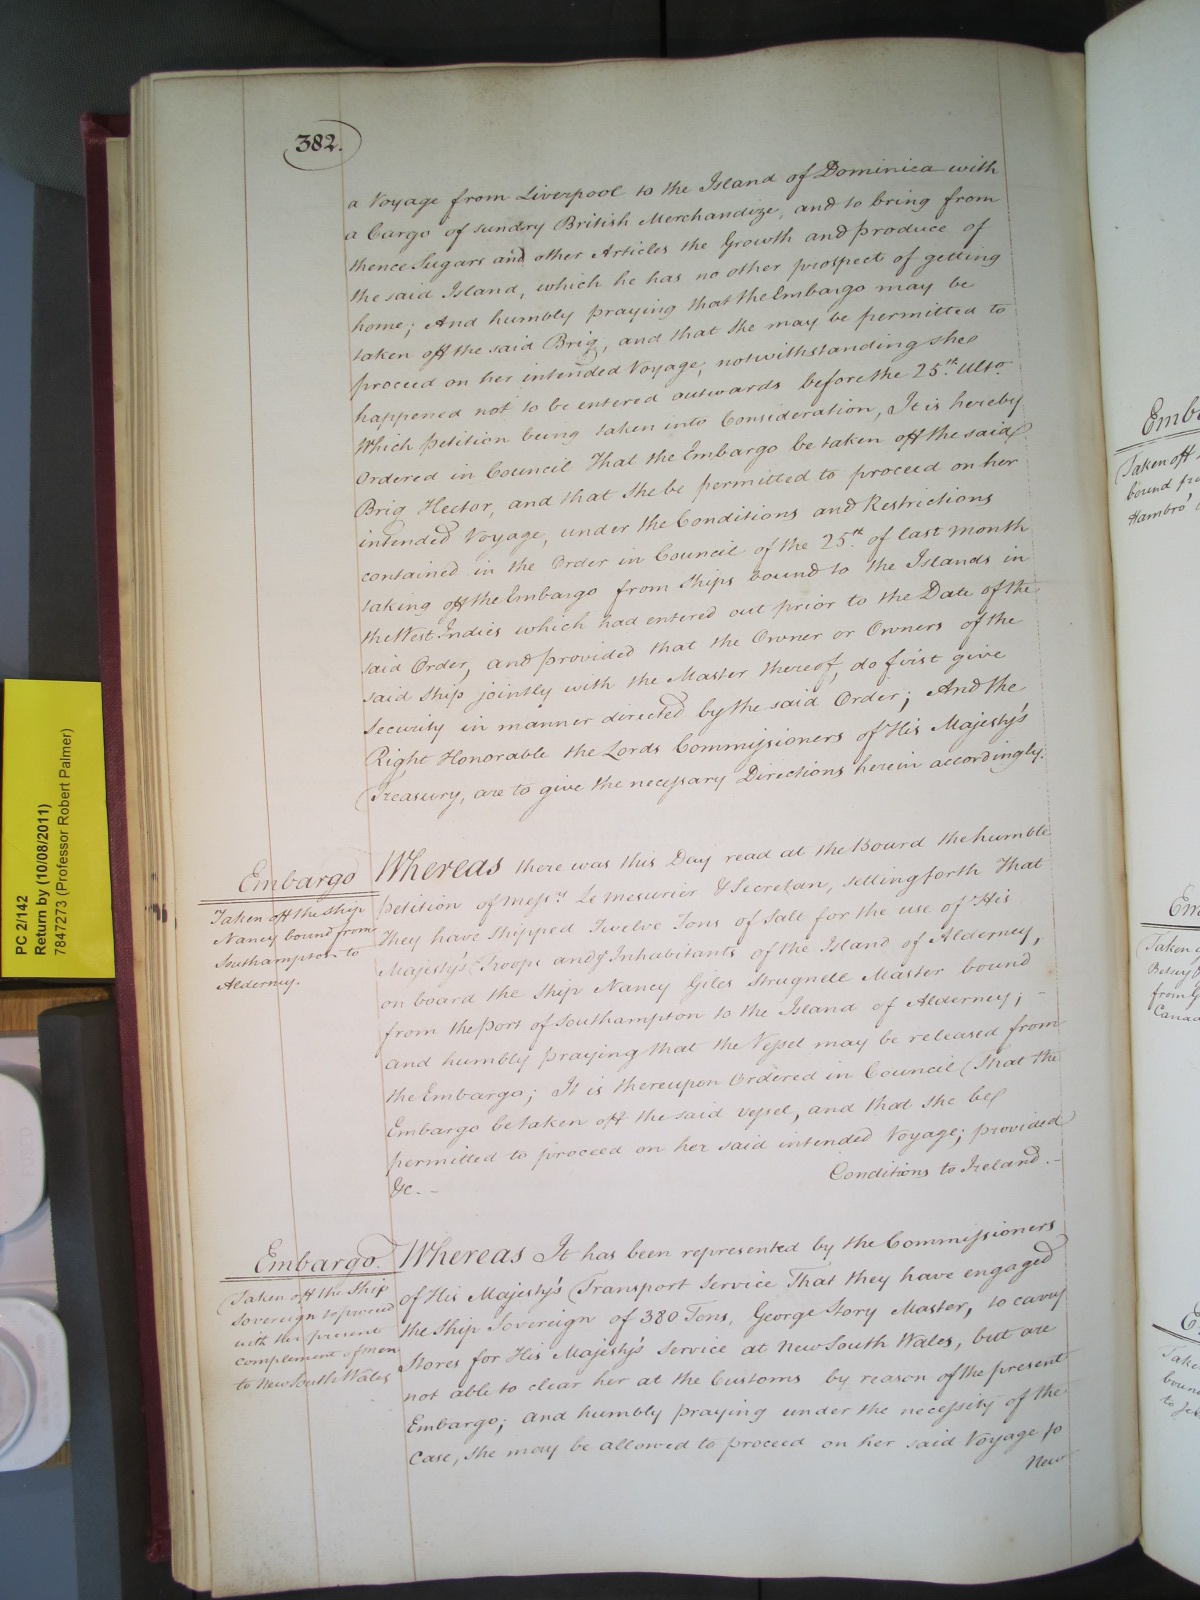 382.
a Voyage from Liverpool to the Island of Dominica with
a Cargo of sundry British Merchandize, and to bring from
thence Sugars and other Articles the Growth and produce of
the said Island, which he has no other prospect of getting
home; And humbly praying that the Embargo may be
taken off the said Brig, and that She may be permitted to
proceed on her intended Voyage, notwithstanding she
happened not to be entered outwards before the 25th. Ulto.
Which Petition being taken into Consideration, It is hereby
Ordered in Council That the Embargo be taken off the said
Brig Hector, and that She be permitted to proceed on her
intended Voyage, under the Conditions and Restrictions
contained in the Order in Council of the 25th. of last Month
taking off the Embargo from Ships bound to the Islands in
the West Indies which had entered out prior to the Date of the
said Order, and provided that the Owner or Owners of the
said Ship jointly with the Master thereof, do first give
Security in manner directed by the said Order; And the
Right Honorable the Lords Commissioners of His Majesty's
Treasury, are to give the necessary Directions herein accordingly.
Embargo
Taken off the Ship
Nancy bound from
Southampton to
Alderney.
Whereas there was this Day read at the Board the humble
Petition of Messrs. Le Mesurier & Secretan, setting forth That
They have Shipped Twelve Tons of Salt for the use of His
Majesty's Troops and Inhabitants of the Island of Alderney,
on board the Ship Nancy Giles Strugnell Master bound
from the Port of Southampton to the Island of Alderney; -
and humbly praying that the Vessel may be released from
the Embargo; It is thereupon Ordered in Council That the
Embargo be taken off the said Vessel, and that she be
permitted to proceed on her said intended Voyage; provided
&c. - Conditions to Ireland. -
Embargo.
Taken off the Ship
Sovereign to proceed
with her present
complement of men
to New South Wales
Whereas It has been represented by the Commissioners
of His Majesty's Transport Service That they have engaged
the Ship Sovereign of 380 Tons, George Story Master, to carry
Stores for His Majesty's Service at New South Wales, but are
not able to clear her at the Customs by reason of the present
Embargo; and humbly praying under the necessity of the
Case, she may be allowed to proceed on her said Voyage to
New
PC 2/142
Return by (10/08/2011)
7847273 (Professor Robert Palmer)
Emb
Taken off
bound fro
Hambro'
Em
Taken
Betsey
from G
Canad
E
Take
bound